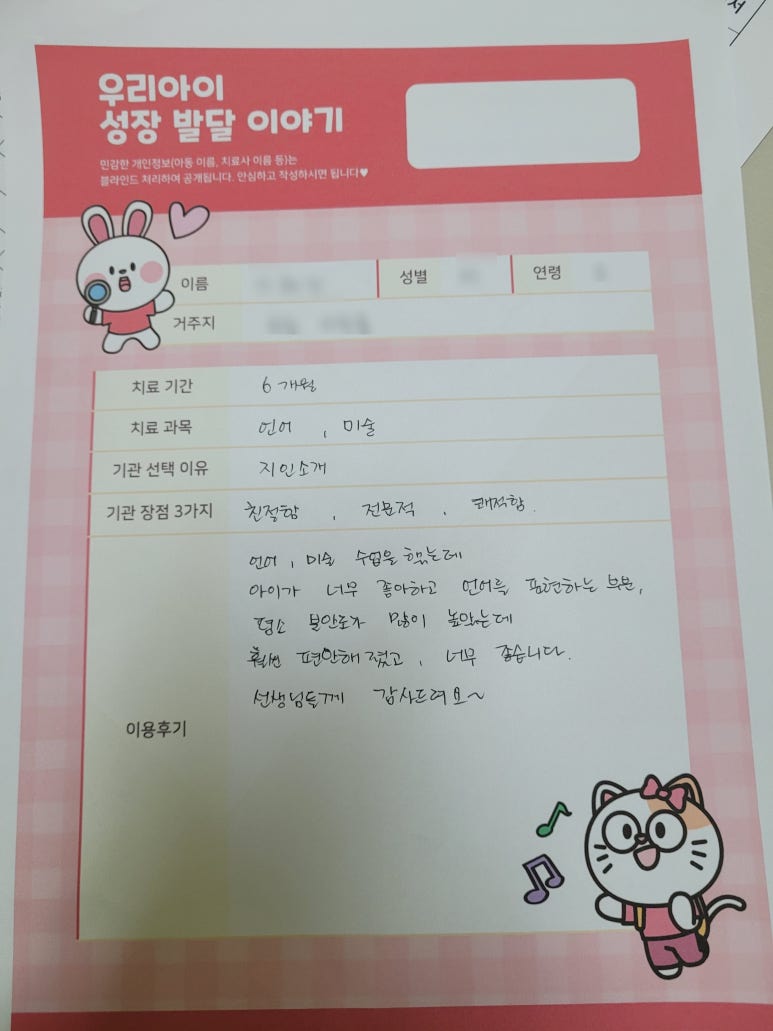 우리아이
성장 발달 이야기
민감한 개인정보(아동 이름, 치료사 이름 등)는
블라인드 처리하여 공개됩니다. 안심하고 작성하시면 됩니다♥
이름 성별 연령
거주지
치료 기간 6개월
치료 과목 언어 , 미술
기관 선택 이유 지인소개
기관 장점 3가지 친절함 , 전문적 , 쾌적함.
언어 , 미술 수업을 했는데
아이가 너무 좋아하고 언어를 표현하는 부분,
평소 불안도가 많이 높았는데
훨씬 편안해졌고 , 너무 좋습니다.
선생님들께 감사드려요~
이용후기